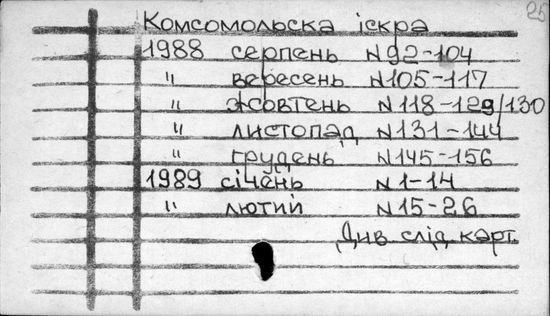 25
Комсомольска іскра
1988 серпень N92-104
" вересень N105-117
" жовтень N118-129/130
" листопад N131-144
" грудень N145-156
1989 січень N1-14
" лютий N15-26
Див. слід. карт.